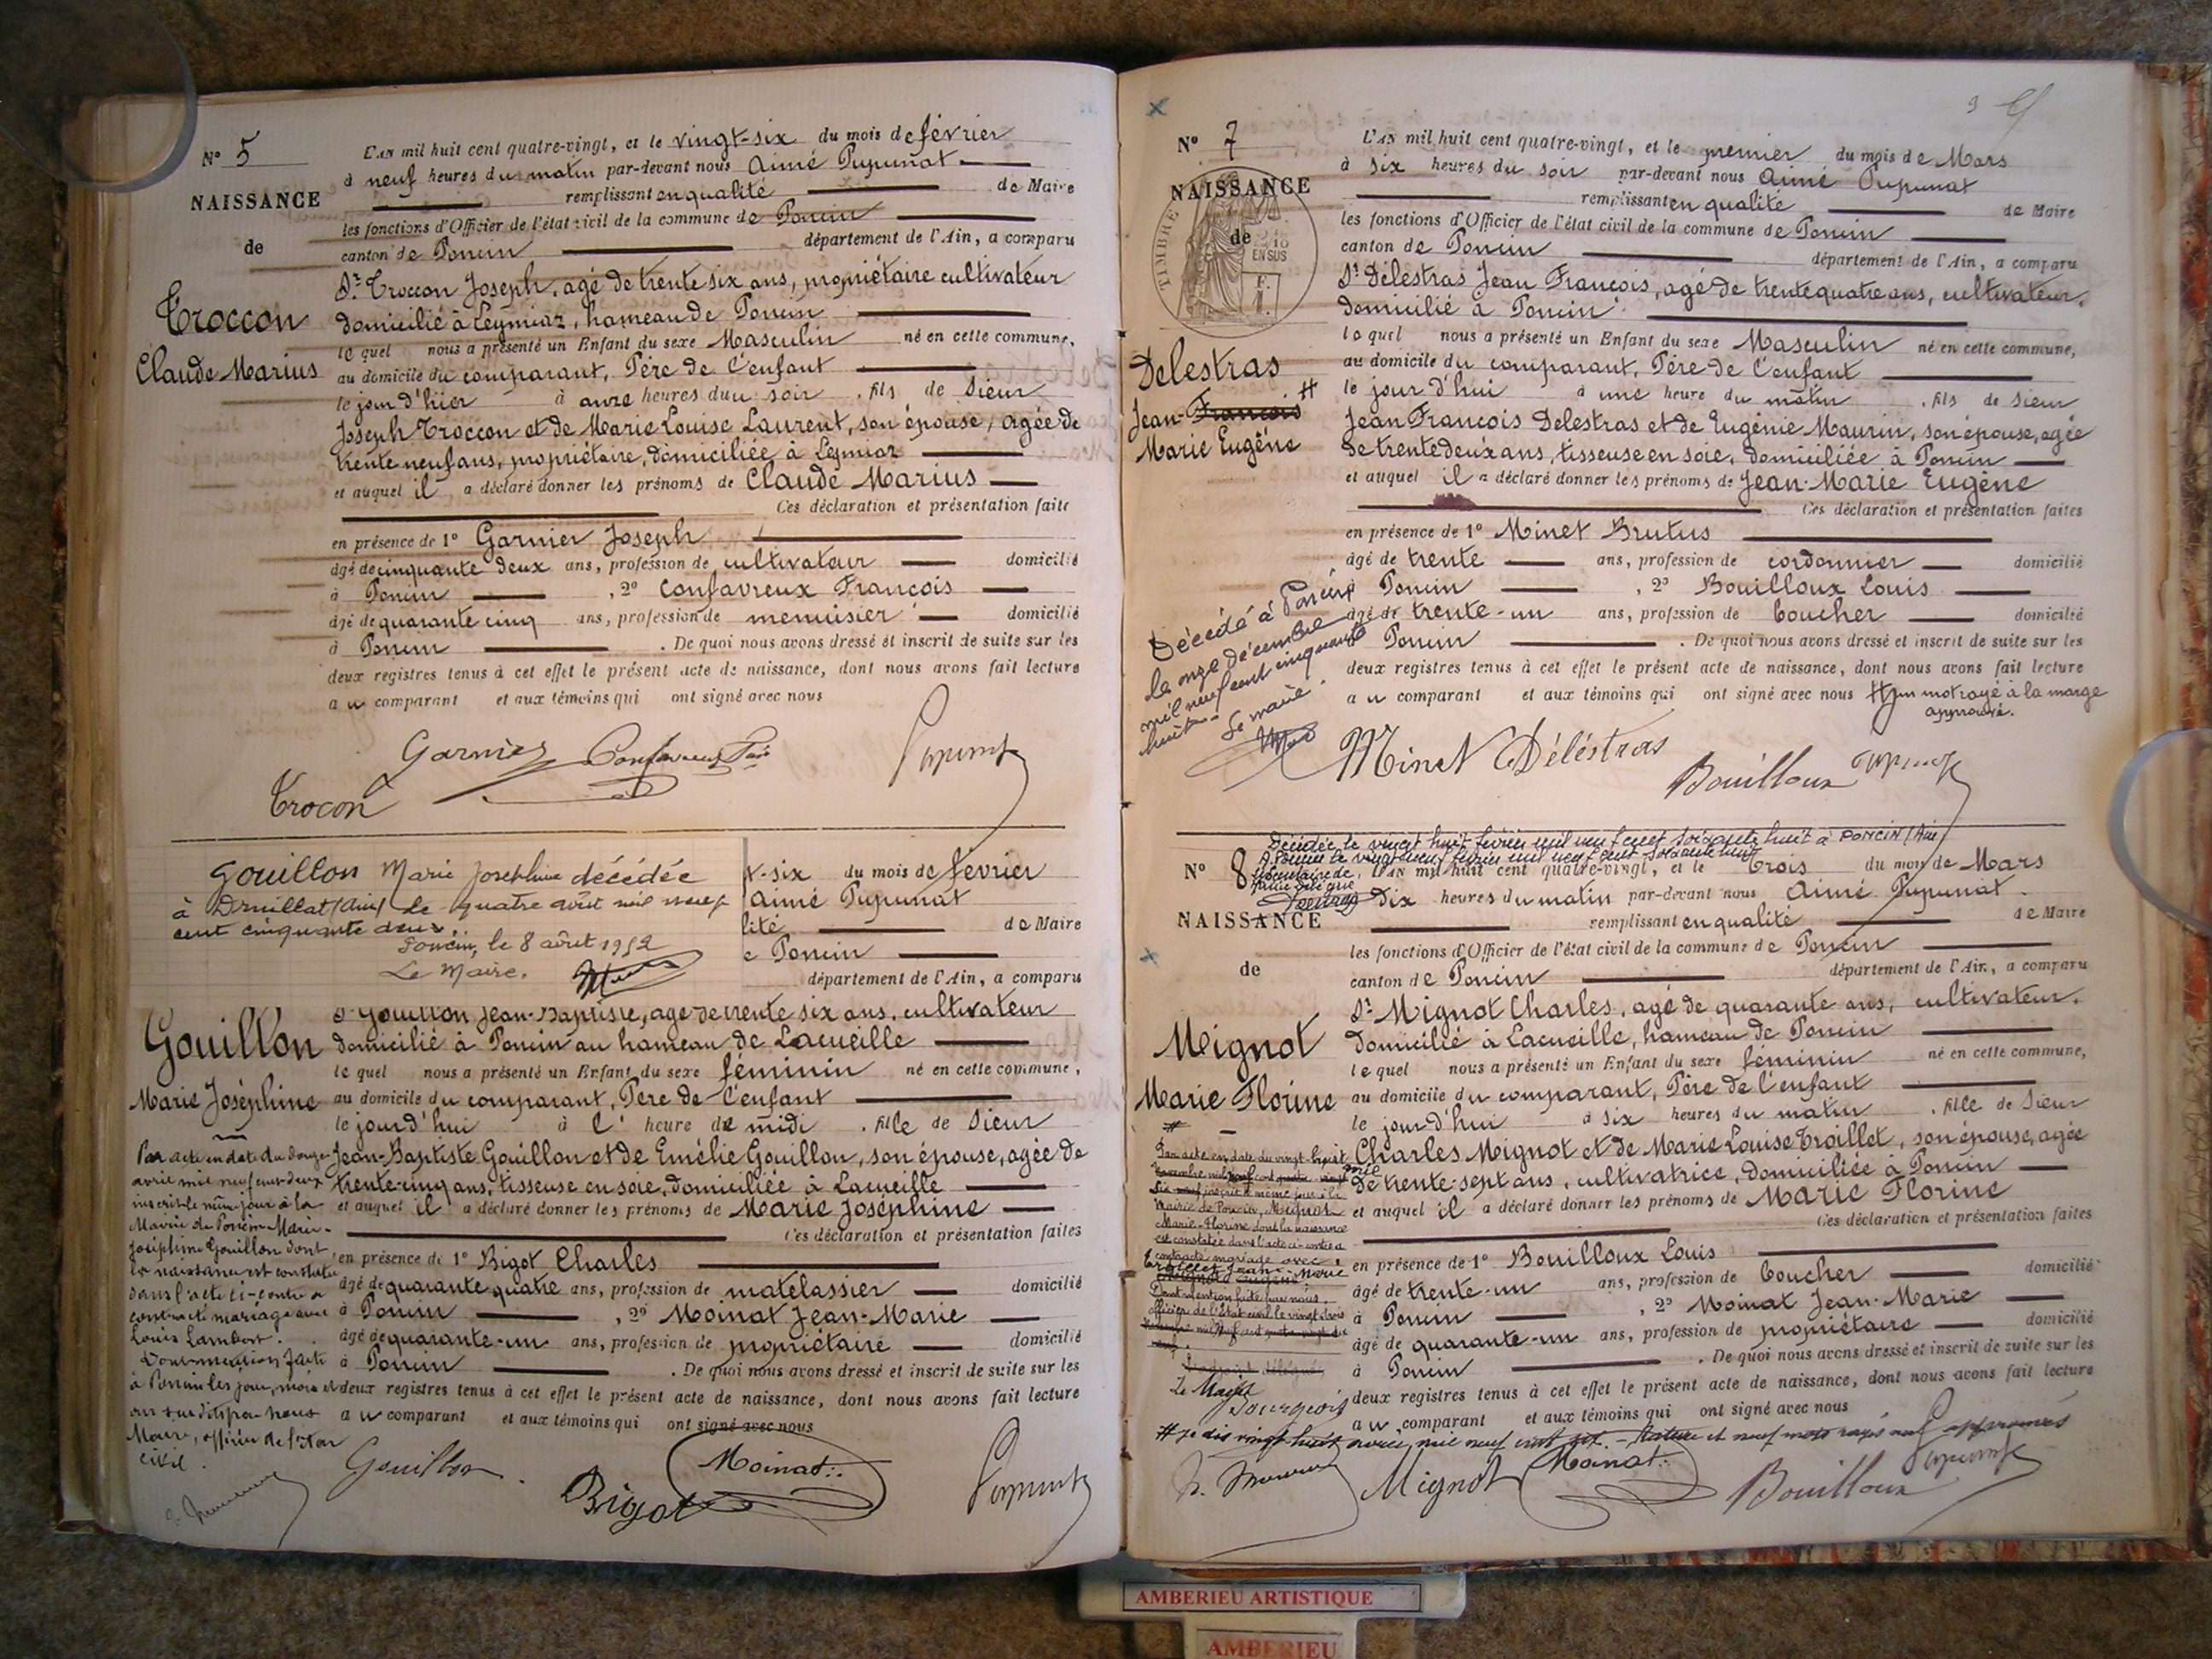 N° 5
L'AN mil huit cent quatre-vingt, et le vingt-six du mois de février
à neuf heures du matin par-devant nous Aimé Pupunat
remplissant en qualité de Maire
NAISSANCE
les fonctions d'Officier de l'état civil de la commune de Poncin
de
canton de Poncin département de l'Ain, a comparu
Sr. Troccon Joseph, agé de trente six ans, propriétaire cultivateur
Troccon
domicilié à Leymiaz, hameau de Poncin
lequel nous a présenté un Enfant du sexe Masculin né en cette commune,
Claude Marius
au domicile du comparant, Père de l'enfant
le jour d'hier à onze heures du soir, fils de Sieur
Joseph Troccon et de Marie Louise Laurent, son épouse, agée de
trente neuf ans, propriétaire, domiciliée à Leymiaz
et auquel il a déclaré donner les prénoms de Claude Marius
Ces déclaration et présentation faite
en présence de 1° Garnier Joseph
âgé de cinquante deux ans, profession de cultivateur domicilié
à Poncin, 2° Confavreux François
âgé de quarante cinq ans, profession de menuisier domicilié
à Poncin. De quoi nous avons dressé et inscrit de suite sur les
deux registres tenus à cet effet le présent acte de naissance, dont nous avons fait lecture
au comparant et aux témoins qui ont signé avec nous
Garnier Confavreux Pupunat
Trocon
Gouillon Marie Joséphine décédée
à Druillat (Ain) le quatre août mil neuf
cent cinquante deux.
Poncin, le 8 août 1952
Le Maire.
t-six du mois de février
Aimé Pupunat
lité de Maire
e Poncin
département de l'Ain, a comparu
Sr Gouillon Jean-Baptiste, agé de trente six ans, cultivateur
Gouillon
domicilié à Poncin au hameau de Lacueille
lequel nous a présenté un Enfant du sexe féminin né en cette commune,
Marie Joséphine
au domicile du comparant, Père de l'enfant
le jour d'hui à l' heure de midi, fille de Sieur
Jean-Baptiste Gouillon et de Emélie Gouillon, son épouse, agée de
trente-cinq ans, tisseuse en soie, domiciliée à Lacueille
et auquel il a déclaré donner les prénoms de Marie Joséphine
Ces déclaration et présentation faites
en présence de 1° Bigot Charles
âgé de quarante quatre ans, profession de matelassier domicilié
à Poncin, 2° Moinat Jean-Marie
âgé de quarante-un ans, profession de propriétaire domicilié
à Poncin. De quoi nous avons dressé et inscrit de suite sur les
deux registres tenus à cet effet le présent acte de naissance, dont nous avons fait lecture
au comparant et aux témoins qui ont signé avec nous
Par acte en date du douze
avril mil neuf cent deux
inscrit le même jour à la
Mairie de Poncin Marie-
Joséphine Gouillon dont
la naissance est constatée
dans l'acte ci-contre a
contracté mariage avec
Louis Lambert.
Dont mention faite
à Poncin les jour, mois et
an susdits par nous
Maire, officier de l'état
civil.
Gouillon Bigot Moinat Pupunat
N° 7
L'AN mil huit cent quatre-vingt, et le premier du mois de Mars
à six heures du soir par-devant nous Aimé Pupunat
NAISSANCE
remplissant en qualité de Maire
les fonctions d'Officier de l'état civil de la commune de Poncin
de
TIMBRE
EN SUS
canton de Poncin département de l'Ain, a comparu
Sr Délestras Jean François, agé de trente quatre ans, cultivateur,
domicilié à Poncin
lequel nous a présenté un Enfant du sexe Masculin né en cette commune,
Delestras
au domicile du comparant, Père de l'enfant
Jean-François #
Marie Eugéne
le jour d'hui à une heure du matin, fils de Sieur
Jean François Delestras et de Eugénie Maurin, son épouse, agée
de trente deux ans, tisseuse en soie, domiciliée à Poncin
et auquel il a déclaré donner les prénoms de Jean-Marie Eugène
Ces déclaration et présentation faites
en présence de 1° Minet Brutus
âgé de trente ans, profession de cordonnier domicilié
à Poncin, 2° Bouilloux Louis
âgé de trente-un ans, profession de boucher domicilié
à Poncin. De quoi nous avons dressé et inscrit de suite sur les
deux registres tenus à cet effet le présent acte de naissance, dont nous avons fait lecture
au comparant et aux témoins qui ont signé avec nous # un mot rayé à la marge
approuvé.
Décédé à Poncin
le onze décembre
mil neuf cent cinquante
huit
Le maire
Minet Déléstras Bouilloux Pupunat
Décédée le vingt huit février mil neuf cent soixante huit à PONCIN (Ain)
A Poncin le vingt neuf février mil neuf cent soixante huit
N° 8
L'AN mil huit cent quatre-vingt, et le trois du mois de Mars
Dix heures du matin par-devant nous Aimé Pupunat
NAISSANCE
remplissant en qualité de Maire
les fonctions d'Officier de l'état civil de la commune de Poncin
de
canton de Poncin département de l'Ain, a comparu
Sr Mignot Charles, agé de quarante ans, cultivateur,
Mignot
domicilié à Lacueille, hameau de Poncin
lequel nous a présenté un Enfant du sexe féminin né en cette commune,
Marie Florine
au domicile du comparant, Père de l'enfant
le jour d'hui à six heures du matin, fille de Sieur
Charles Mignot et de Marie Louise Troillet, son épouse, agée
de trente-sept ans, cultivatrice, domiciliée à Poncin
et auquel il a déclaré donner les prénoms de Marie Florine
Ces déclaration et présentation faites
en présence de 1° Bouilloux Louis
âgé de trente-un ans, profession de boucher domicilié
à Poncin, 2° Moinat Jean-Marie
âgé de quarante-un ans, profession de propriétaire domicilié
à Poncin. De quoi nous avons dressé et inscrit de suite sur les
deux registres tenus à cet effet le présent acte de naissance, dont nous avons fait lecture
au comparant et aux témoins qui ont signé avec nous
Par acte en date du vingt huit
inscrit le même jour à la
Mairie de Poncin, Mignot
Marie-Florine dont la naissance
est constatée dans l'acte ci-contre a
contracté mariage avec
Dont mention faite par nous,
officier de l'état civil le vingt
Le Maire
Bourgeois
Mignot Moinat Bouilloux Pupunat
AMBERIEU ARTISTIQUE
AMBERIEU